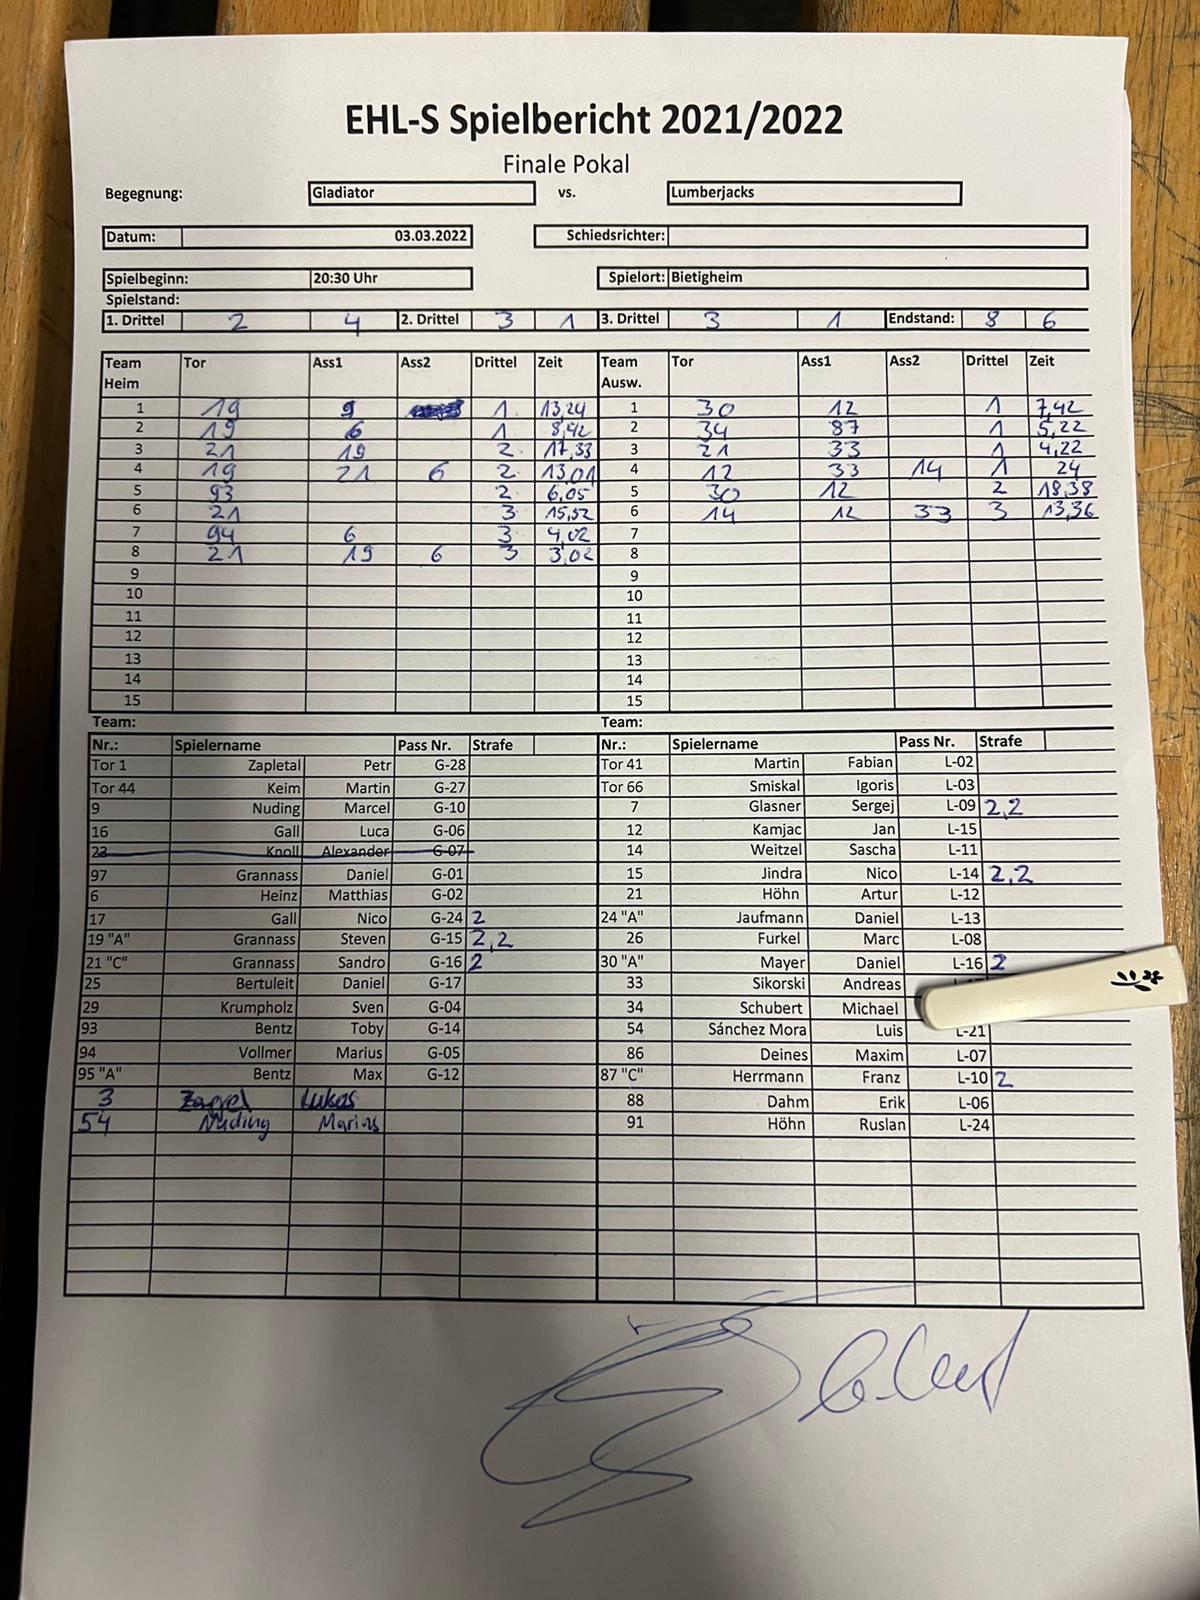 EHL-S Spielbericht 2021/2022
Finale Pokal
Begegnung: Gladiator vs. Lumberjacks
Datum: 03.03.2022 Schiedsrichter:
Spielbeginn: 20:30 Uhr Spielort: Bietigheim
Spielstand:
1. Drittel 2 4 2. Drittel 3 1 3. Drittel 3 1 Endstand: 8 6
Team Heim Tor Ass1 Ass2 Drittel Zeit Team Ausw. Tor Ass1 Ass2 Drittel Zeit
1 19 9 1 13,24 1 30 12 1 7,42
2 19 6 1 8,42 2 34 87 1 5,22
3 21 19 2 17,33 3 21 33 1 4,22
4 19 21 6 2 13,01 4 12 33 14 1 24
5 93 2 6,05 5 30 12 2 18,38
6 21 3 15,52 6 14 12 33 3 13,36
7 94 6 3 4,02 7
8 21 19 6 3 3,02 8
9 9
10 10
11 11
12 12
13 13
14 14
15 15
Team: Team:
Nr.: Spielername Pass Nr. Strafe Nr.: Spielername Pass Nr. Strafe
Tor 1 Zapletal Petr G-28 Tor 41 Martin Fabian L-02
Tor 44 Keim Martin G-27 Tor 66 Smiskal Igoris L-03
9 Nuding Marcel G-10 7 Glasner Sergej L-09 2,2
16 Gall Luca G-06 12 Kamjac Jan L-15
23 Knoll Alexander G-07 14 Weitzel Sascha L-11
97 Grannass Daniel G-01 15 Jindra Nico L-14 2,2
6 Heinz Matthias G-02 21 Höhn Artur L-12
17 Gall Nico G-24 2 24 "A" Jaufmann Daniel L-13
19 "A" Grannass Steven G-15 2,2 26 Furkel Marc L-08
21 "C" Grannass Sandro G-16 2 30 "A" Mayer Daniel L-16 2
25 Bertuleit Daniel G-17 33 Sikorski Andreas
29 Krumpholz Sven G-04 34 Schubert Michael
93 Bentz Toby G-14 54 Sánchez Mora Luis L-21
94 Vollmer Marius G-05 86 Deines Maxim L-07
95 "A" Bentz Max G-12 87 "C" Herrmann Franz L-10 2
3 Lukas 88 Dahm Erik L-06
54 Nuding Marius 91 Höhn Ruslan L-24